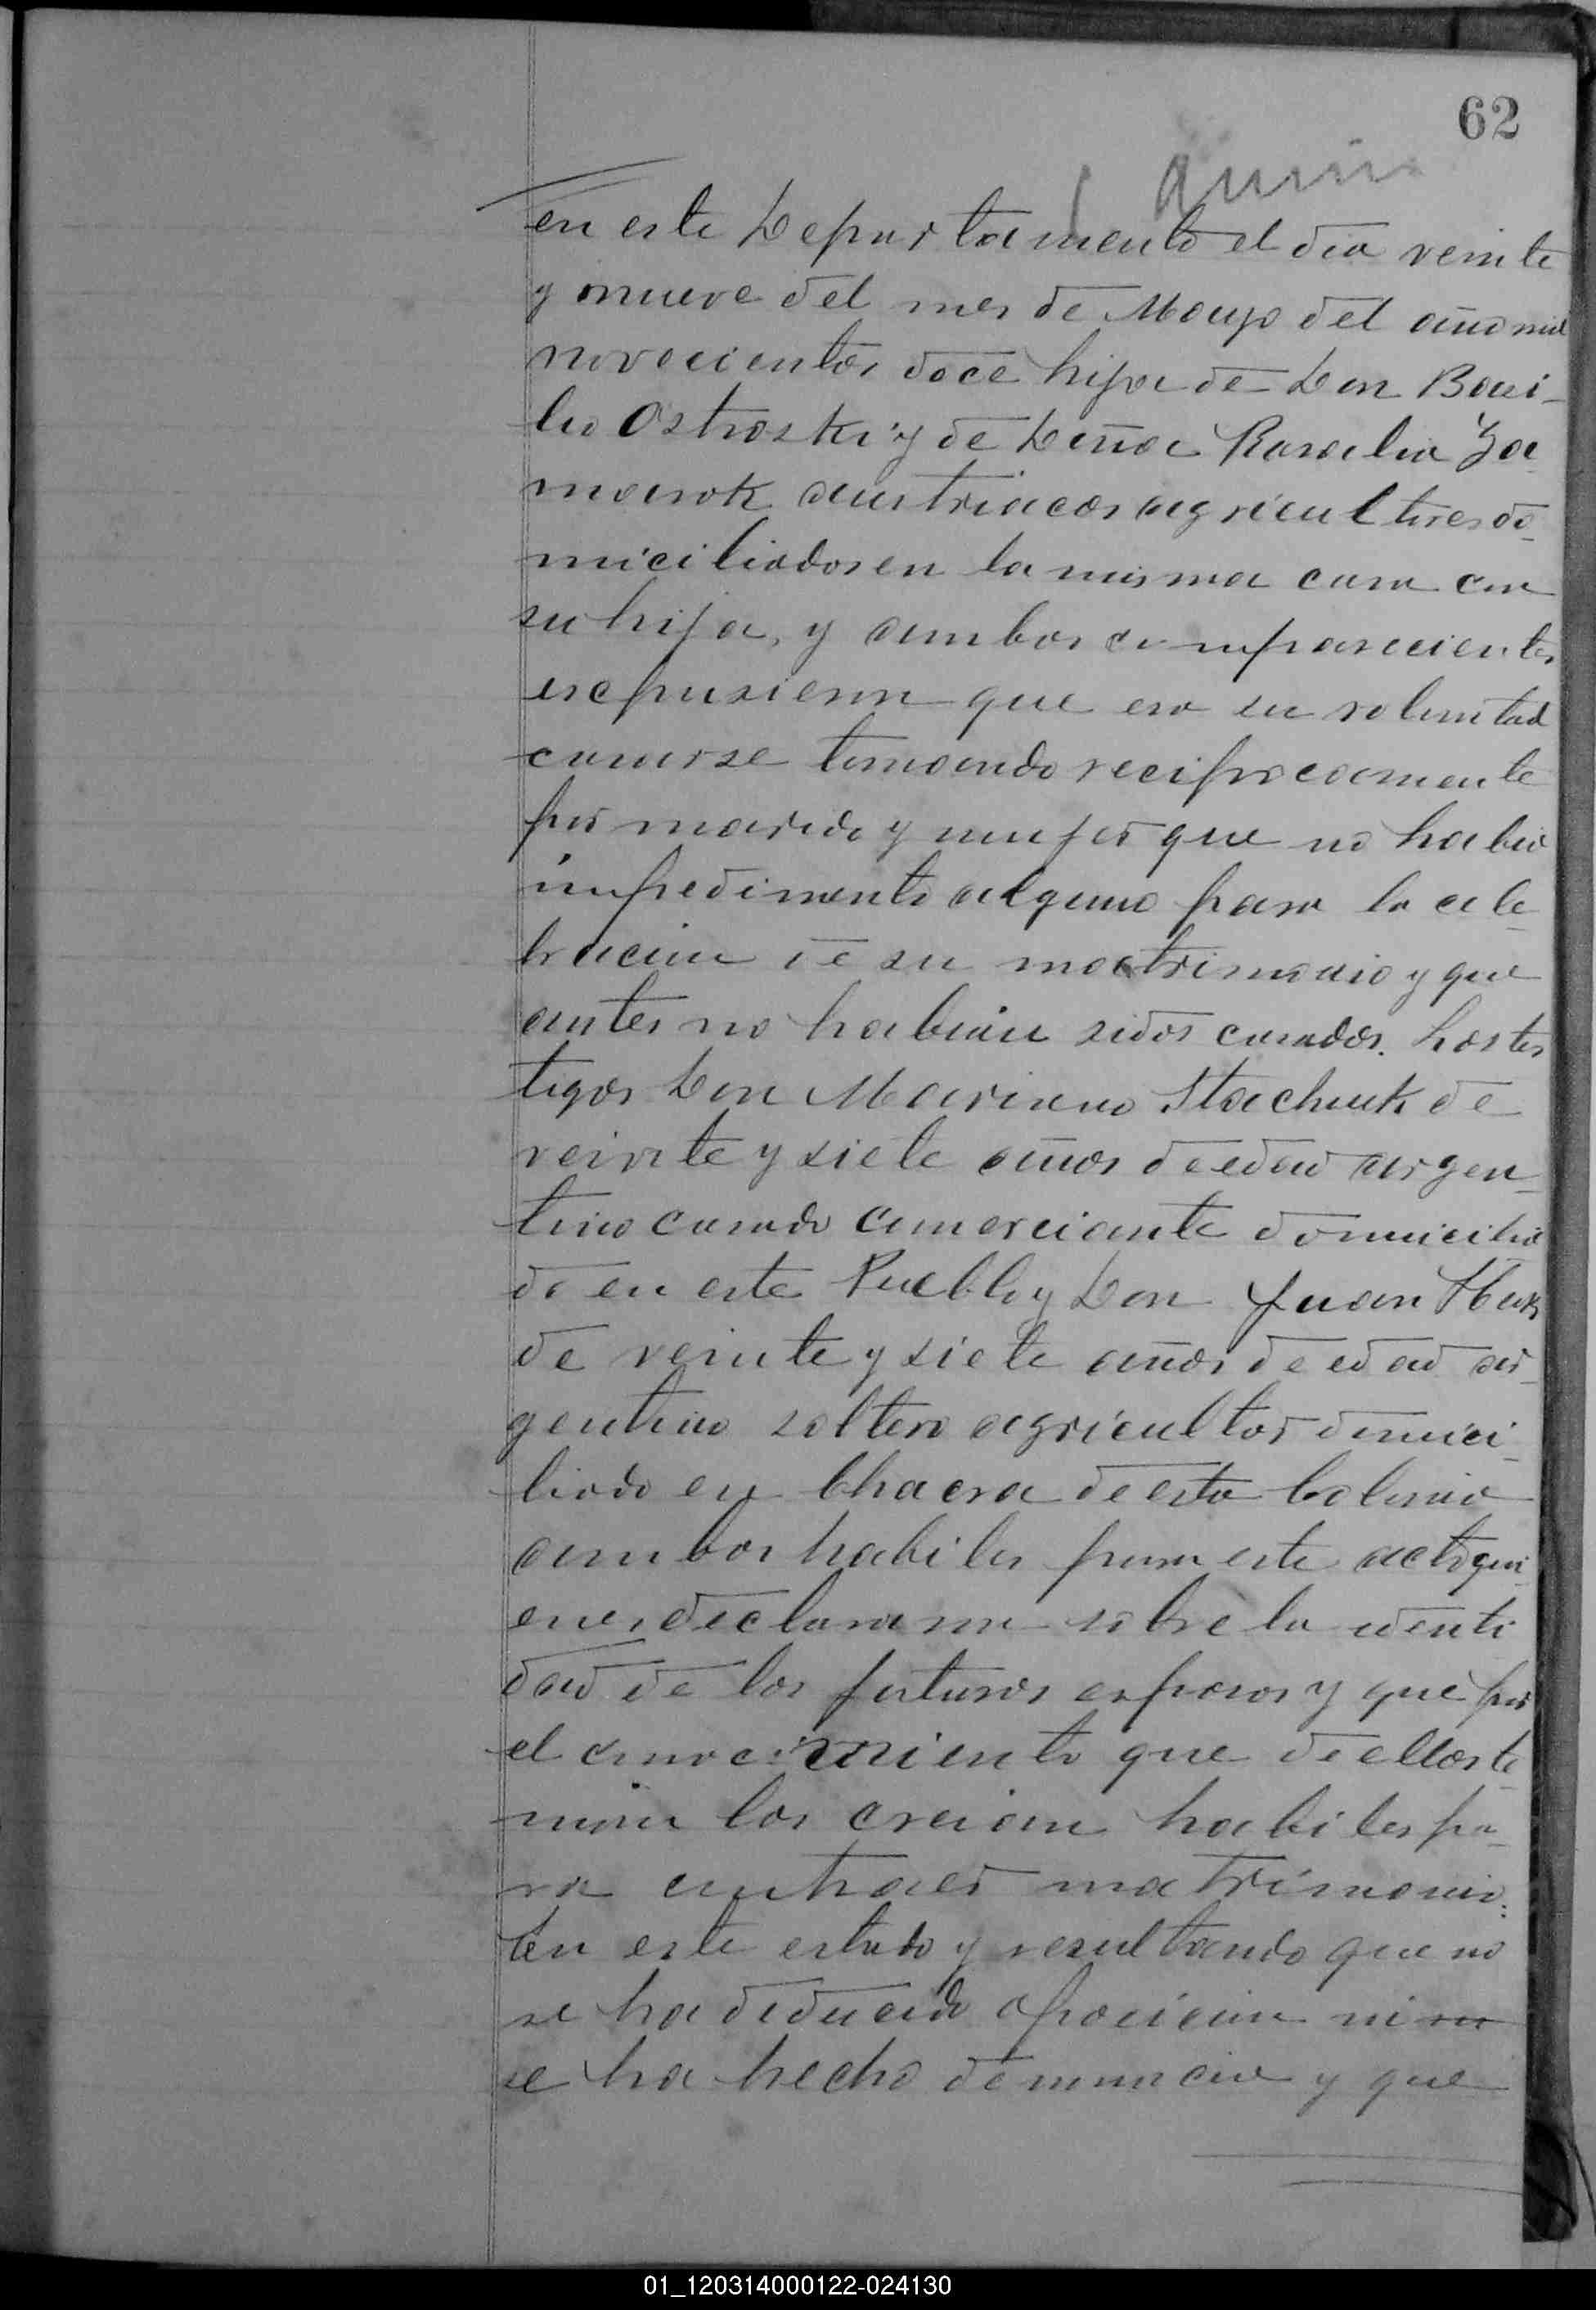 62
en este Departamento el dia veinte
y nueve del mes de Mayo del año mil
novecientos doce hija de Don Baci-
lio Ostroski y de Doña Rosalia Ja-
marok austriacos agricultores do-
miciliados en la misma casa con
su hija, y ambos comparecientes
expusieron que era su voluntad
casarse tomando reciprocamente
por marido y mujer que no habia
impedimento alguno para la cele-
bracion de su matrimonio y que
antes no habian sidos casados. Los tes
tigos Don Mariano Stachuk de
veinte y siete años de edad argen-
tino casado comerciante domicilia
do en este Pueblo y Don Juan
de veinte y siete años de edad ar-
gentino soltero agricultor domici-
liado en Chacra de esta Colonia
ambos habiles para este acto qui-
enes declararon sobre la identi
dad de los futuros esposos y que por
el conocimiento que de ellos te-
nian los creian habiles pa-
ra contraer matrimonio.
En este estado y resultando que no
se ha deducido oposicion ni
se ha hecho denuncia y que
01_120314000122-024130